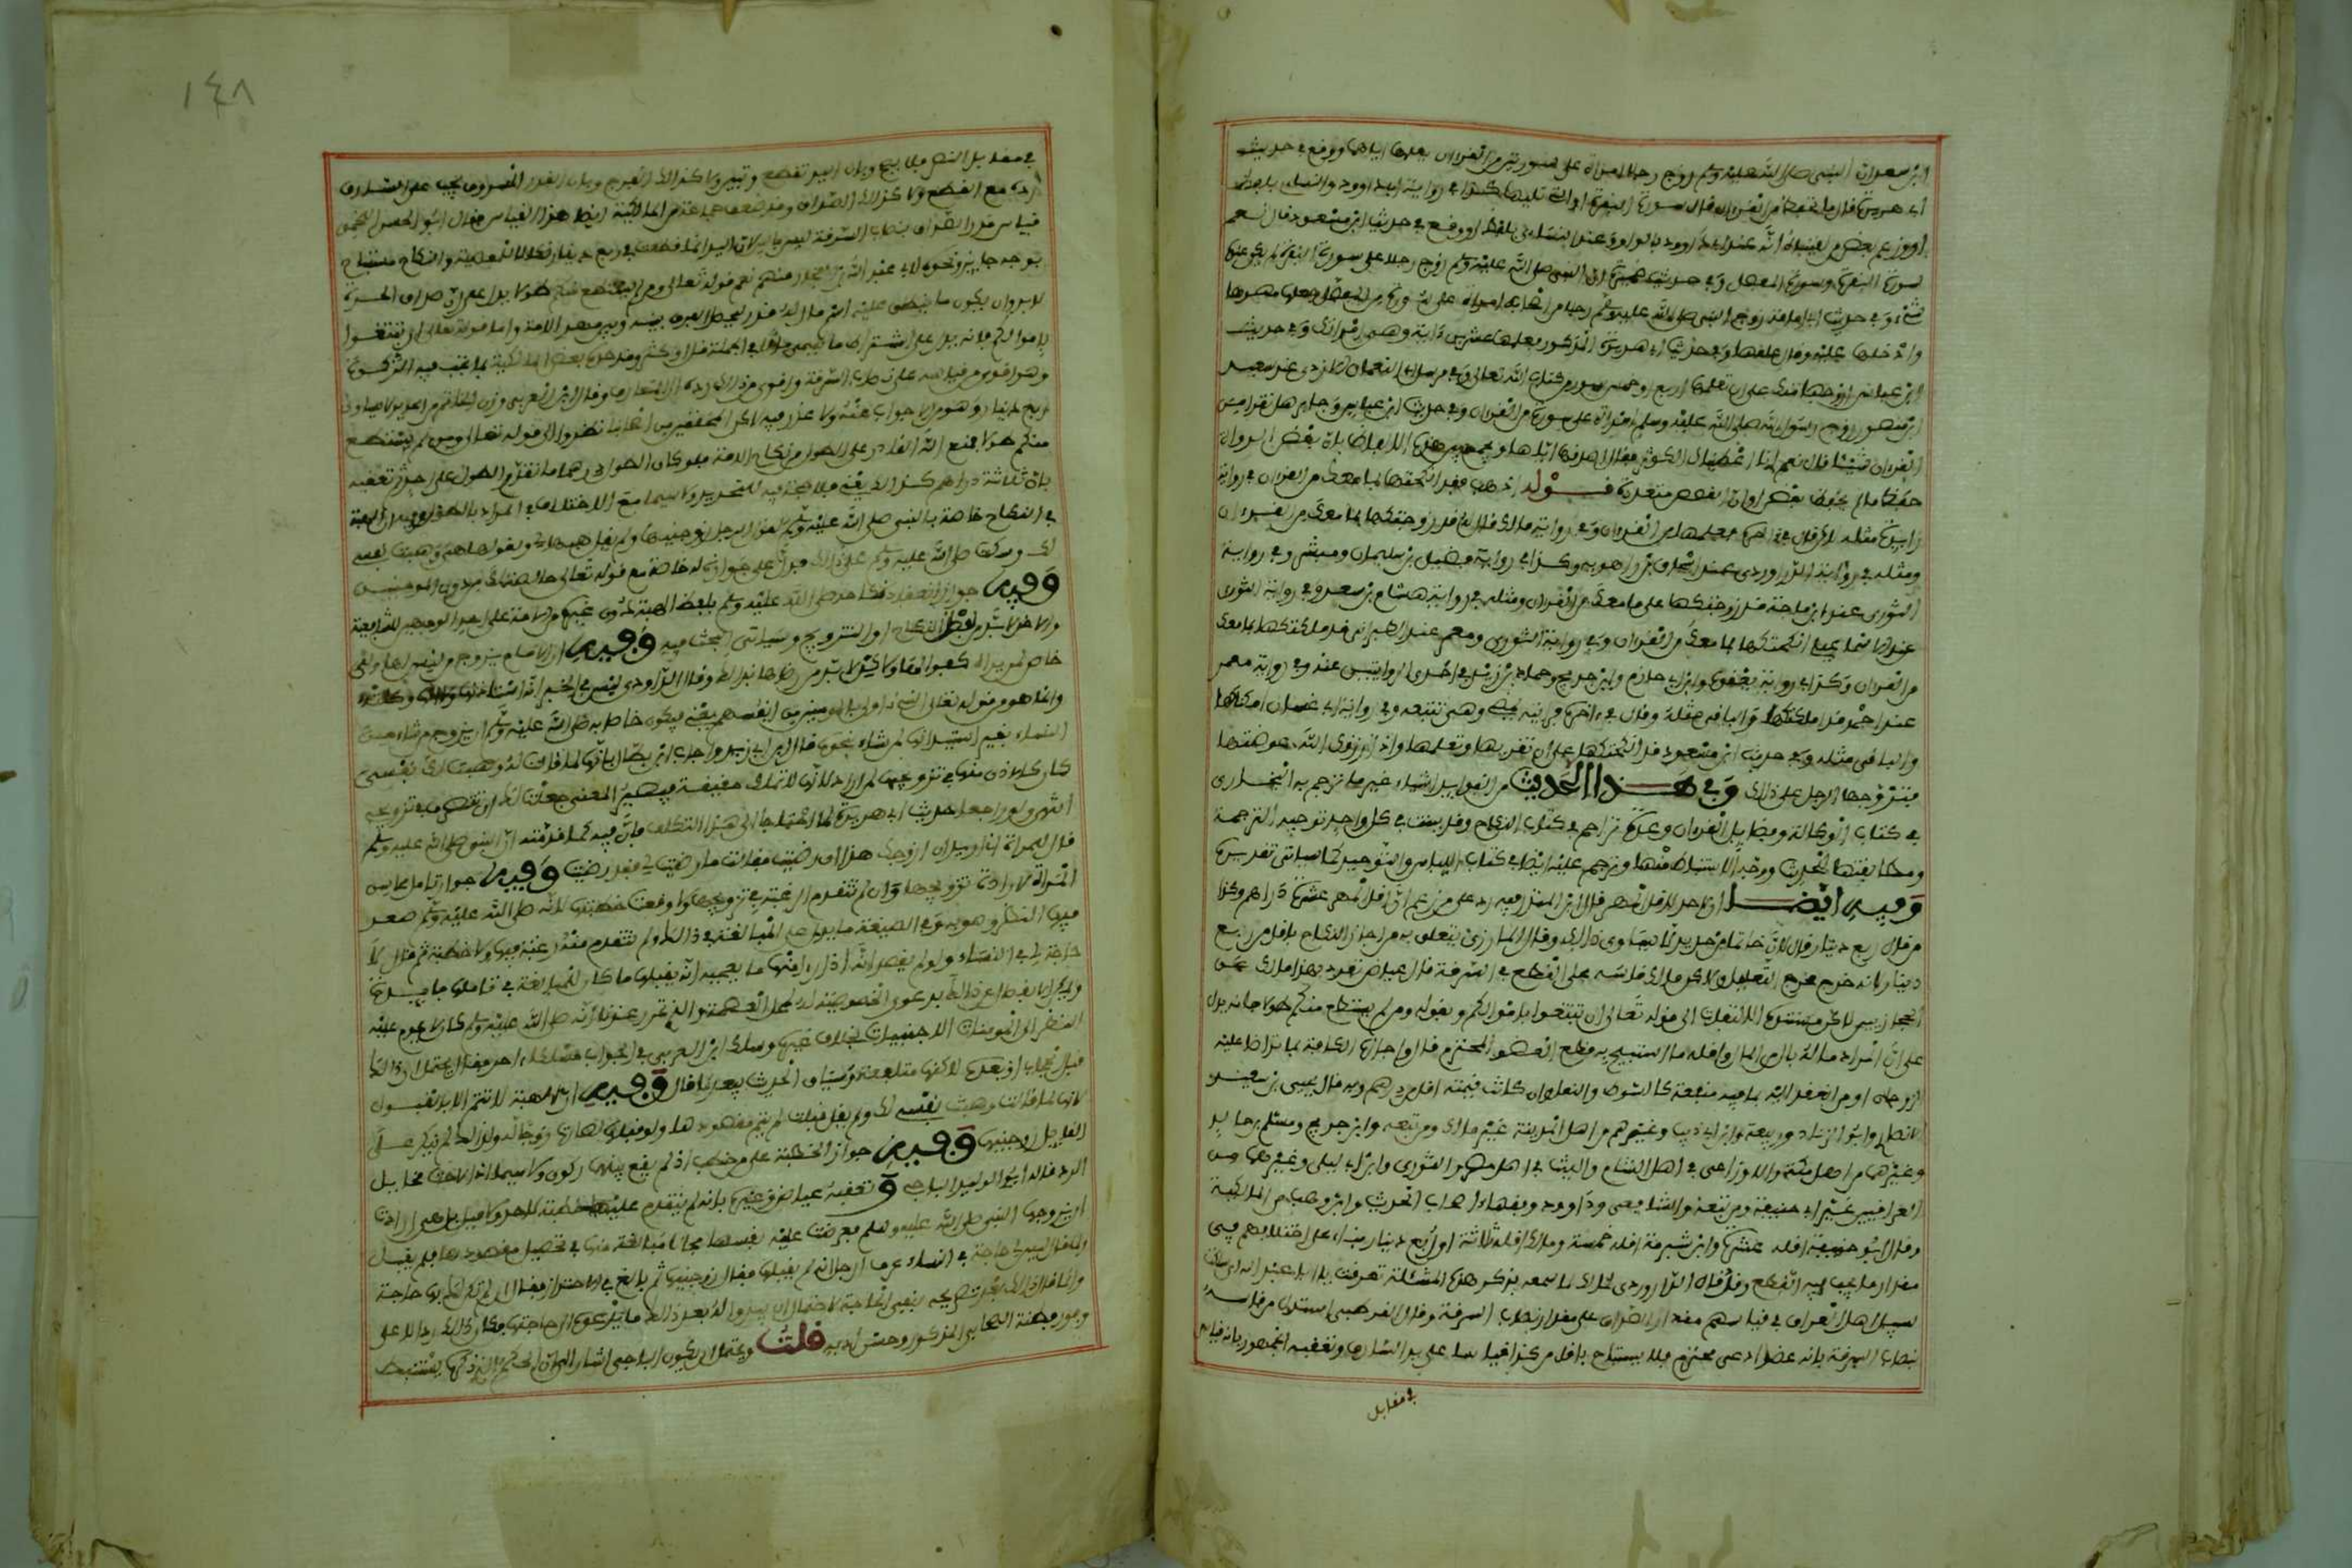 ابن سعد ان النبي صلى الله عليه وسلم زوج رجلا امراة على سورتين من القرءان يعلمها اياهما ووقع في حديث
ابي هريرة قال ما تحفظ من القرءان قال سورة البقرة او التي تليها كذا في رواية ابي داوود والنسائي بلفظ
او وزعم بعض من لقيناه انه عند ابي داوود بالواو وعند النسائي بلفظ او ووقع في حديث ابن مسعود قال نعم
سورة البقرة وسورة المفصل وفي حديث ضميرة ان النبي صلى الله عليه وسلم زوج رجلا على سورة البقرة لم يكن عنده
شيء وفي حديث ابي امامة زوج النبي صلى الله عليه وسلم رجلا من اصحابه امراة على سورة من المفصل جعلها مهرها
وادخلها عليه وقال علمها وفي حديث ابي هريرة المذكور فعلمها عشرين ءاية وهي امراتك وفي حديث
ابن عباس ازوجها منك على ان تعلمها اربع او خمس سور من كتاب الله تعالى وفي مرسل ابي النعمان الازدي عند سعيد
ابن منصور زوج رسول الله صلى الله عليه وسلم امراة على سورة من القرءان وفي حديث ابن عباس وجابر هل تقرا من
القرءان شيئا قال نعم انا اعطيناك الكوثر فقال اصدقها اياها ويجمع بين هذه الالفاظ بان بعض الرواة
حفظ ما لم يحفظ بعض او ان القصص متعددة قوله اذهب فقد انكحتكها بما معك من القرءان في رواية
زايدة مثله لاكن قال في ءاخره فعلمها من القرءان وفي رواية مالك قال له قد زوجتكها بما معك من القرءان
ومثله في رواية الدراوردي عند اسحاق بن راهويه وكذا في رواية فضيل بن سليمان ومبشر وفي رواية
الثوري عند ابن ماجة قد زوجتكها على ما معك من القرءان ومثله في رواية هشام بن سعد وفي رواية الثوري
عند الاسماعيلي انكحتكها بما معك من القرءان وفي رواية الثوري ومعمر عند الطبراني قد ملكتكها بما معك
من القرءان وكذا في رواية يعقوب وابن ابي حازم وابن جريج وحماد بن زيد في احدى الروايتين عنه وفي رواية معمر
عند احمد قد املكتكها والباقي مثله وقال في ءاخره فرايته يمضي وهي تتبعه وفي رواية ابي غسان امكناكها
والباقي مثله وفي حديث ابن مسعود قد انكحتكها على ان تقريها وتعلمها واذا رزقك الله عوضتها
فتزوجها الرجل على ذلك وفي هذا الحديث من الفوايد اشياء غير ما ترجم به البخاري
في كتاب الوكالة وفضايل القرءان وعدة تراجم في كتاب النكاح وقد بينت في كل واحد توجيه الترجمة
ومطابقتها للحديث ووجه الاستنباط منها وترجم عليه ايضا في كتاب اللباس والتوحيد كما سياتي تقريره
وفيه ايضا ان لا حد لاقل المهر قال ابن المنذر فيه رد على من زعم ان اقل المهر عشرة دراهم وكذا
من قال ربع دينار قال لان خاتما من حديد لا يساوي ذلك وقال المازري تعلق به من اجاز النكاح باقل من ربع
دينار لانه خرج مخرج التعليل ولاكن مالك قاسه على القطع في السرقة قال عياض تفرد بهذا مالك عن
الحجازيين لاكن مستنده الالتفات الى قوله تعالى ان تبتغوا باموالكم وبقوله ومن لم يستطع منكم طولا فانه يدل
على ان المراد ما له بال من المال واقله ما استبيح به قطع العضو المحترم قال واجازه الكافة بما تراضا عليه
الزوجان او من العقد اليه بما فيه منفعة كالسوط والنعل وان كانت قيمته اقل من درهم وبه قال يحيى بن سعيد
الانصاري وابو الزناد وربيعة وابن ابي ذيب وغيرهم من اهل المدينة غير مالك ومن تبعه وابن جريج ومسلم بن خالد
وغيرهما من اهل مكة والاوزاعي في اهل الشام والليث في اهل مصر والثوري وابن ابي ليلى وغيرهما من
العراقيين غير ابي حنيفة ومن تبعه والشافعي وداوود وفقهاء اصحاب الحديث وابن وهب من المالكية
وقال ابو حنيفة اقله عشرة وابن شبرمة اقله خمسة ومالك اقله ثلاثة او ربع دينار بناء على اختلافهم في
مقدار ما يجب فيه القطع وقد قال الدراوردي لمالك لما سمعه يذكر هذه المسئلة تعرقت يا ابا عبد الله اي سلكت
سبيل اهل العراق في قياسهم مقدار الصداق على مقدار نصاب السرقة وقال القرطبي استدل من قاسه
بنصاب السرقة بانه عضو ادمي محترم فلا يستباح باقل من كذا قياسا على يد السارق وتعقبه الجمهور بانه قياس
في مقابل
١٤٨
في مقابل النص فلا يصح وبان اليد تقطع وتبين ولا كذلك الفرج وبان القدر المسروق يجب على السارق
رده مع القطع ولا كذلك الصداق وقد ضعف جماعة من المالكية ايضا هذا القياس فقال ابو الحسن اللخمي
قياس قدر الصداق بنصاب السرقة ليس بالبين لان اليد انما قطعت في ربع دينار نكالا للمعصية والنكاح مستباح
بوجه جايز ونحوه لابي عبد الله بن الفخار منهم نعم قوله تعالى ومن لم يستطع منكم طولا يدل على ان صداق الحرة
لا بد وان يكون ما ينطلق عليه اسم مال له قدر ليحصل الفرق بينه وبين مهر الامة واما قوله تعالى ان تبتغوا
باموالكم فانه يدل على اشتراط ما يسمى مالا في الجملة قل او كثر وقد حده بعض المالكية بما تجب فيه الزكوة
وهو اقوى من قياسه على نصاب السرقة واقوى من ذلك رده الى المتعارف وقال ابن العربي وزن الخاتم من الحديد لا يساوي
ربع دينار وهو مما لا جواب عنه ولا عذر فيه لاكن المحققين من اصحابنا نظروا الى قوله تعالى ومن لم يستطع
منكم طولا فمنع الله القادر على الطول من نكاح الامة فلو كان الطول درهما ما تعذر الطول على احد ثم تعقبه
بان ثلاثة دراهم كذلك يعني فلا حجة فيه للتحديد ولا سيما مع الاختلاف في المراد بالطول وفيه ان الهبة
في النكاح خاصة بالنبي صلى الله عليه وسلم لقول الرجل زوجنيها ولم يقل هبها لي ولقولها هي وهبت نفسي
لك وسكت صلى الله عليه وسلم على ذلك فدل على جوازه له خاصة مع قوله تعالى خالصة لك من دون المومنين
وفيه جواز انعقاد نكاحه صلى الله عليه وسلم بلفظ الهبة دون غيره من الامة على احد الوجهين للشافعية
والاخر لا بد من لفظ النكاح او التزويج وسياتي البحث فيه وفيه ان الامام يزوج من ليس لها ولي
خاص لمن يراه كفوا لها ولاكن لا بد من رضاها بذلك وقال الداودي ليس في الخبر انه استاذنها ولا انها وكلته
وانما هو من قوله تعالى النبي اولى بالمومنين من انفسهم يعني فيكون خاصا به صلى الله عليه وسلم ان يزوج من شاء من
النساء بغير استيذانها لمن شاء بنحوه قال ابن ابي زيد واجاب ابن بطال بانها لما قالت له وهبت لك نفسي
كان كالاذن منها في تزويجها لمن اراد لانها لا تملك حقيقة فيصير المعنى جعلت لك ان تتصرف في تزويجي
انتهى ولو راجعا حديث ابي هريرة لما احتاجا الى هذا التكلف فان فيه كما قدمته ان النبي صلى الله عليه وسلم
قال للمراة اني اريد ان ازوجك هذا ان رضيت فقالت ما رضيت لي فقد رضيت وفيه جواز تامل محاسن
المراة لارادة تزويجها وان لم تتقدم الرغبة في تزويجها ولا وقعت خطبتها لانه صلى الله عليه وسلم صعد
فيها النظر وصوبه وفي الصيغة ما يدل على المبالغة في ذلك ولم تتقدم منه رغبة فيها ولا خطبة ثم قال لا
حاجة لي في النساء ولو لم يقصد انه اذا راى منها ما يعجبه انه يقبلها ما كان للمبالغة في تاملها فايدة
ويمكن الانفصال عن ذلك بدعوى الخصوصية له لمحل العصمة والذي تحرر عندنا انه صلى الله عليه وسلم كان لا يحرم عليه
النظر الى المومنات الاجنبيات بخلاف غيره وسلك ابن العربي في الجواب مسلكا ءاخر فقال يحتمل ان ذلك
قبل الحجاب او بعده لاكنها متلفعة وسياق الحديث يبعد ما قال وفيه ان الهبة لا تتم الا بالقبول
لانها لما قالت وهبت نفسي لك ولم يقل قبلت لم يتم مقصودها ولو قبلها لصارت زوجا له ولذلك لم ينكر على
القايل زوجنيها وفيه جواز الخطبة على من خطب اذ لم يقع بينهما ركون ولا سيما اذا لاحت مخايل
الرد قاله ابو الوليد الباجي و تعقبه عياض وغيره بانه لم يتقدم عليها خطبة لاحد ولا ميل بل هي ارادت
ان يتزوجها النبي صلى الله عليه وسلم فعرضت عليه نفسها مجانا مبالغة منها في تحصيل مقصودها فلم يقبل
ولما قال ليس لي حاجة في النساء عرف الرجل انه لم يقبلها فقال زوجنيها ثم بالغ في الاحتراز فقال ان لم تكن لك بها حاجة
وانما قال ذلك بعد تصريحه بنفي الحاجة لاحتمال ان يبدو له بعد ذلك ما يدعوه الى اجابتها فكان ذلك دالا على
وفور فطنة الصحابي المذكور وحسن ادبه قلت ويحتمل ان يكون الباجي اشار الى ان الحكم الذي ذكره يستنبط